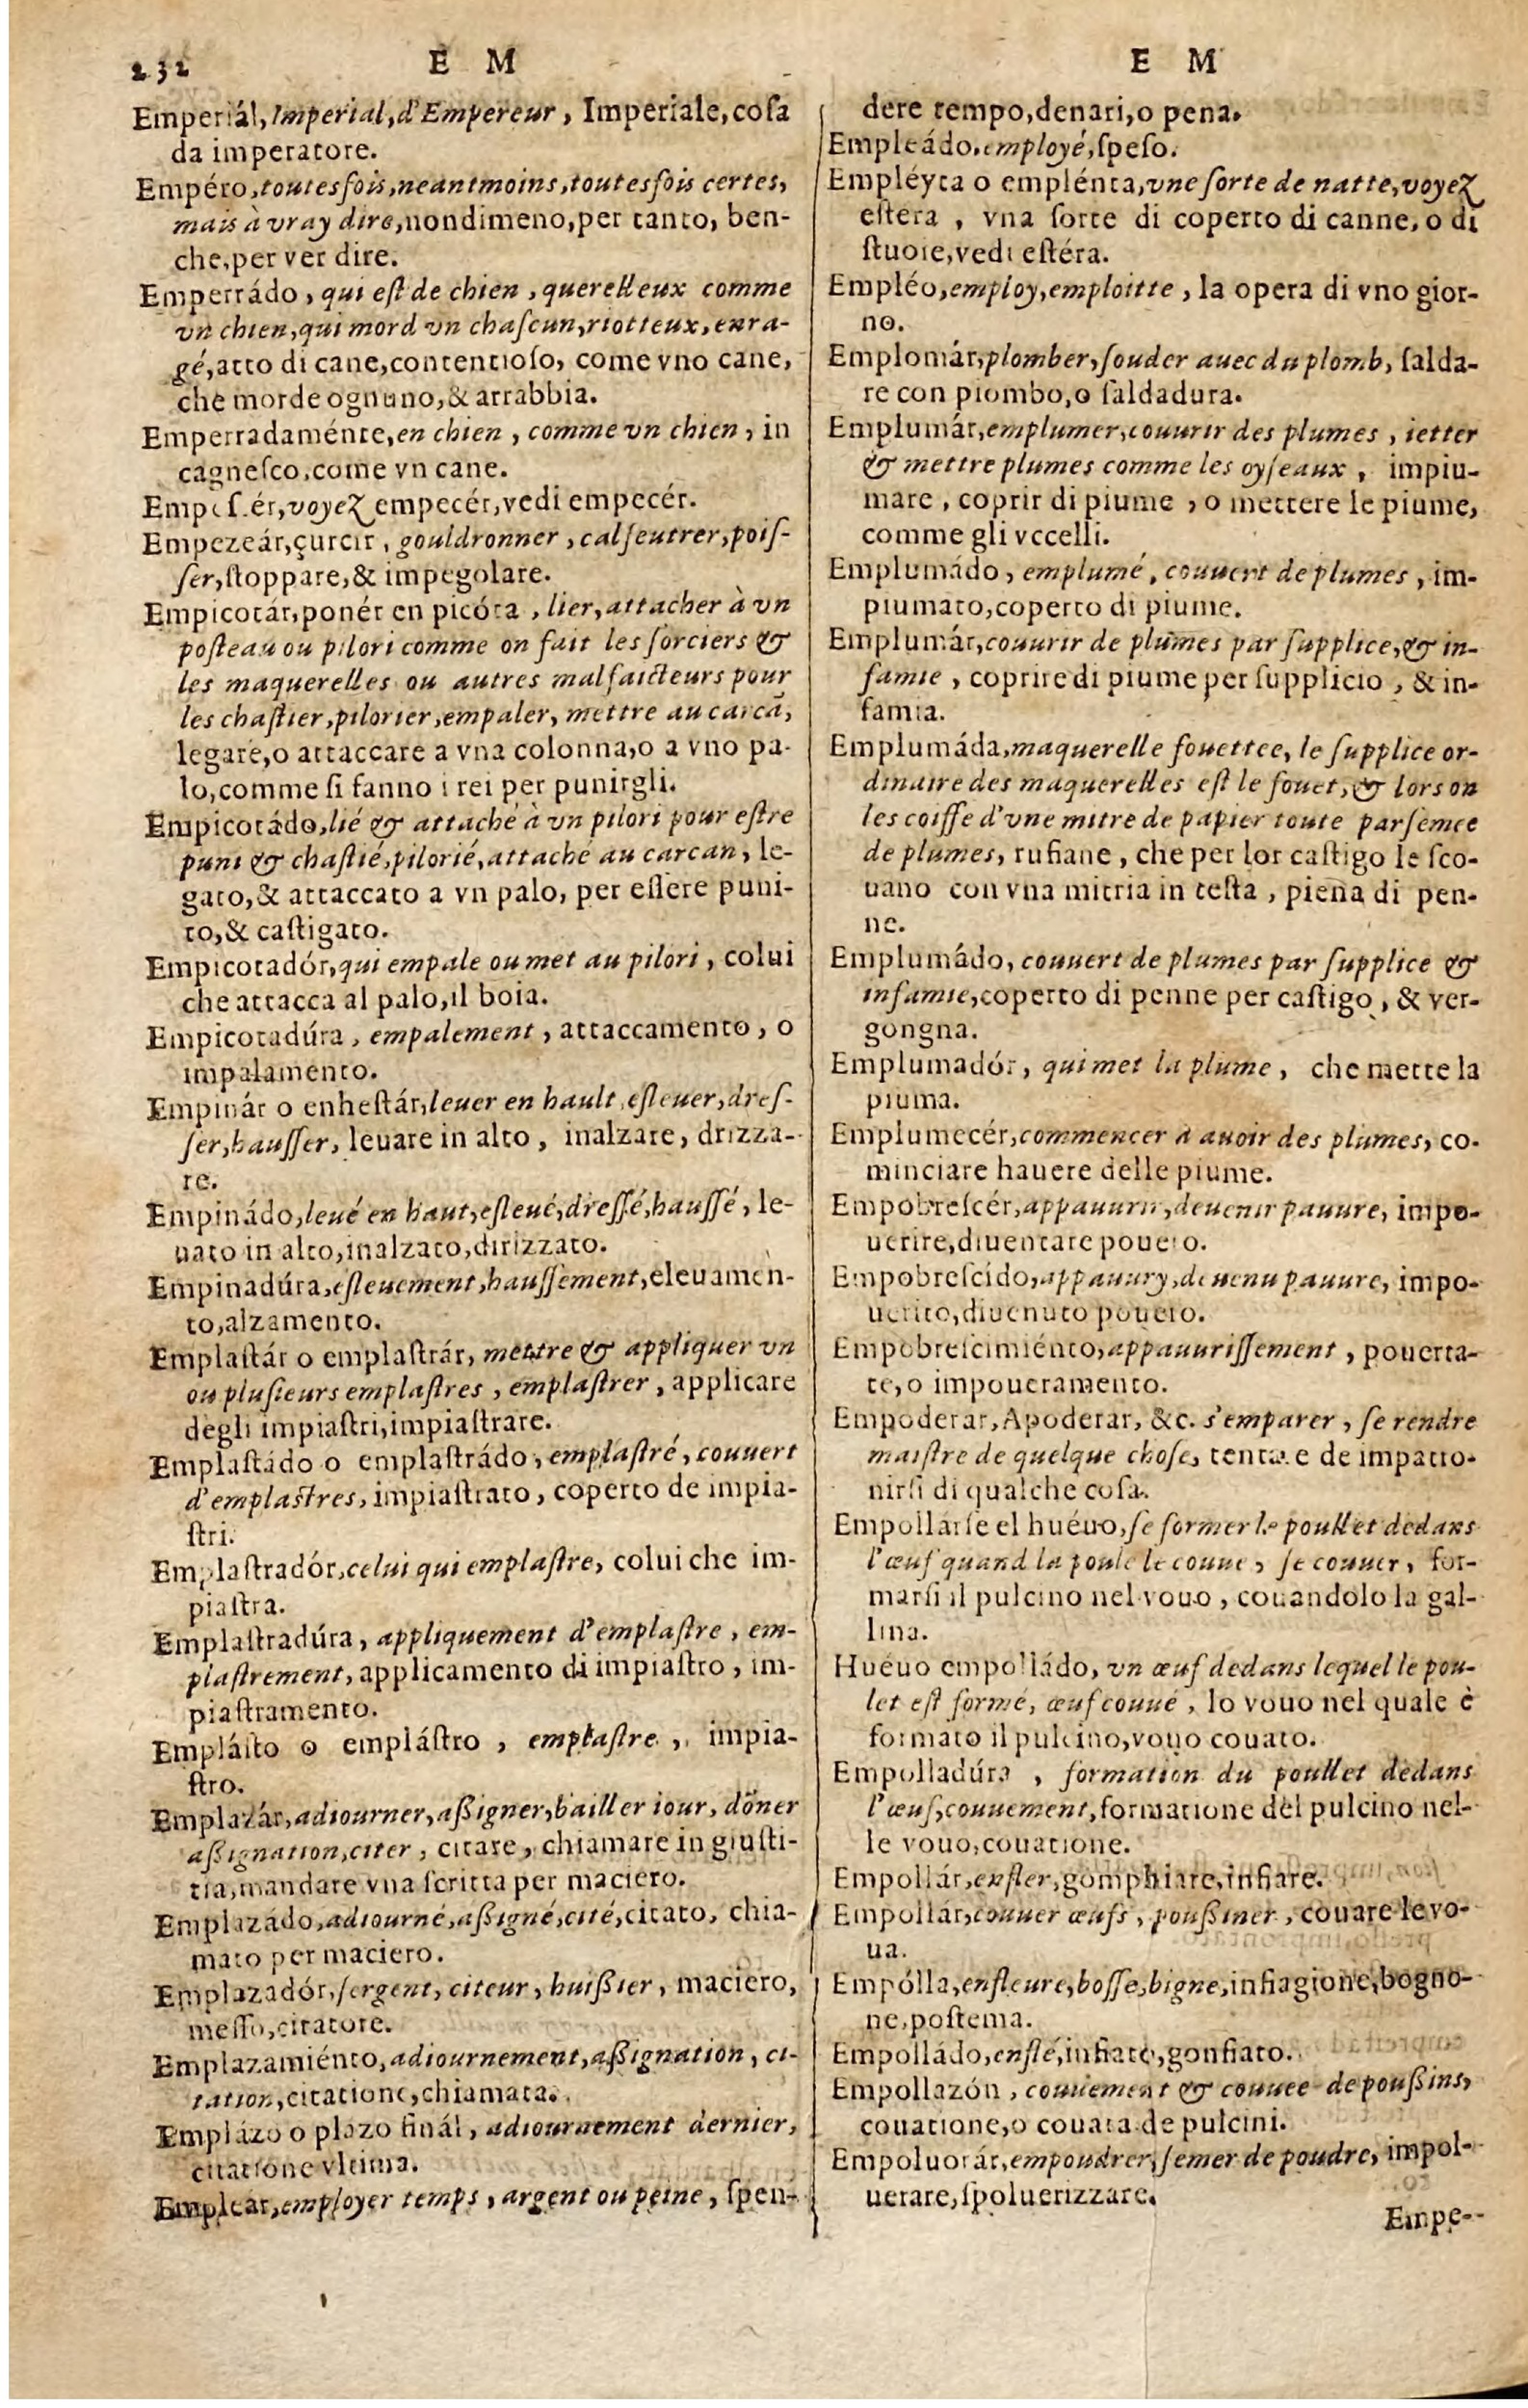 232 E M
Emperiál, Imperial, d'Empereur, Imperiale, coſa
da imperatore.
Empéro, toutesfois, neantmoins, toutesfois certes,
mais à vray dire, nondimeno, per tanto, ben-
che, per ver dire.
Emperrádo, qui eſt de chien, querelleux comme
vn chien, qui mord vn chaſcun, riotteux, enra-
gé, atto di cane, contentioſo, come vno cane,
che morde ognuno, & arrabbia.
Emperradaménte, en chien, comme vn chien, in
cagneſco, come vn cane.
voyez empecér, vedi empecér.
Empezeár, çurcir, gouldronner, calfeutrer, poiſ-
ſer, ſtoppare, & impegolare.
Empicotár, ponér en picóta, lier, attacher à vn
poſteau ou pilori comme on fait les ſorciers &
les maquerelles ou autres malfaicteurs pour
les chaſtier, pilorier, empaler, mettre au carcã,
legare, o attaccare a vna colonna, o a vno pa-
lo, comme ſi fanno i rei per punirgli.
Empicotádo, lié & attaché à vn pilori pour eſtre
puni & chaſtié, pilorié, attaché au carcan, le-
gato, & attaccato a vn palo, per eſſere puni-
to, & caſtigato.
Empicotadór, qui empale ou met au pilori, colui
che attacca al palo, il boia.
Empicotadúra, empalement, attaccamento, o
impalamento.
Empinár o enheſtár, leuer en hault, eſleuer, dreſ-
ſer, hauſſer, leuare in alto, inalzare, drizza-
re.
Empinádo, leué en haut, eſleué, dreſſé, hauſſé, le-
uato in alto, inalzato, dirizzato.
Empinadúra, eſleuement, hauſſement, eleuamen-
to, alzamento.
Emplaſtár o emplaſtrár, mettre & appliquer vn
ou pluſieurs emplaſtres, emplaſtrer, applicare
degli impiaſtri, impiaſtrare.
Emplaſtádo o emplaſtrádo, emplaſtré, couuert
d'emplaſtres, impiaſtrato, coperto de impia-
ſtri.
Emplaſtradór, celui qui emplaſtre, colui che im-
piaſtra.
Emplaſtradúra, appliquement d'emplaſtre, em-
plaſtrement, applicamento di impiaſtro, im-
piaſtramento.
Empláſto o empláſtro, emplaſtre, impia-
ſtro.
Emplazár, adiourner, aßigner, bailler iour, dõner
aßignation, citer, citare, chiamare in giuſti-
tia, mandare vna ſcritta per maciero.
Emplazádo, adiourné, aßigné, cité, citato, chia-
mato per maciero.
Emplazadór, ſergent, citeur, huißier, maciero,
meſſo, citatore.
Emplazamiénto, adiournement, aßignation, ci-
tation, citatione, chiamata.
Emplázo o plazo finál, adiournement dernier,
citatione vltima.
Emplear, employer temps, argent ou peine, ſpen-
E M
dere tempo, denari, o pena.
Empleádo, employé, ſpeſo.
Empléyta o emplénta, vne ſorte de natte, voyez
eſtera, vna ſorte di coperto di canne, o di
ſtuoie, vedi eſtéra.
Empléo, employ, emploitte, la opera di vno gior-
no.
Emplomár, plomber, ſouder auec du plomb, ſalda-
re con piombo, o ſaldadura.
Emplumár, emplumer, couurir des plumes, ietter
& mettre plumes comme les oyſeaux, impiu-
mare, coprir di piume, o mettere le piume,
comme gli vccelli.
Emplumádo, emplumé, couuert de plumes, im-
piumato, coperto di piume.
Emplumár, couurir de plumes par ſupplice, & in-
famie, coprire di piume per ſupplicio, & in-
famia.
Emplumáda, maquerelle fouettee, le ſupplice or-
dinaire des maquerelles eſt le fouet, & lors on
les coiffe d'vne mitre de papier toute parſemee
de plumes, rufiane, che per lor caſtigo le ſco-
uano con vna mitria in teſta, piena di pen-
ne.
Emplumádo, couuert de plumes par ſupplice &
infamie, coperto di penne per caſtigo, & ver-
gongna.
Emplumadór, qui met la plume, che mette la
piuma.
Emplumecér, commencer à auoir des plumes, co-
minciare hauere delle piume.
Empobreſcér, appauurir, deuenir pauure, impo-
uerire, diuentare pouero.
Empobreſcido, appauury, deuenu pauure, impo-
uerito, diuenuto pouero.
Empobreſcimiénto, appauuriſſement, pouerta-
te, o impoueramento.
Empoderar, Apoderar, &c. s'emparer, ſe rendre
maiſtre de quelque choſe, tentare de impatro-
nirſi di qualche coſa.
Empollarſe el huéuo, ſe former le poullet dedans
l'œuf quand la poule le couue, ſe couuer, for-
marſi il pulcino nel vouo, couandolo la gal-
lina.
Huéuo empolládo, vn œuf dedans lequel le pou-
let eſt formé, œuf couué, lo vouo nel quale è
formato il pulcino, vouo couato.
Empolladúra, formation du poullet dedans
l'œuf, couuement, formatione del pulcino nel-
le vouo, couatione.
Empollár, enfler, gomphiare, infiare.
Empollár, couuer œufs, poußiner, couare le vo-
ua.
Empólla, enfleure, boſſe, bigne, infiagione, bogno-
ne, poſtema.
Empolládo, enflé, infiato, gonfiato.
Empollazón, couuement & couuee de poußins,
couatione, o couata de pulcini.
Empoluorár, empoudrer, ſemer de poudre, impol-
uerare, ſpoluerizzare.
Empe-